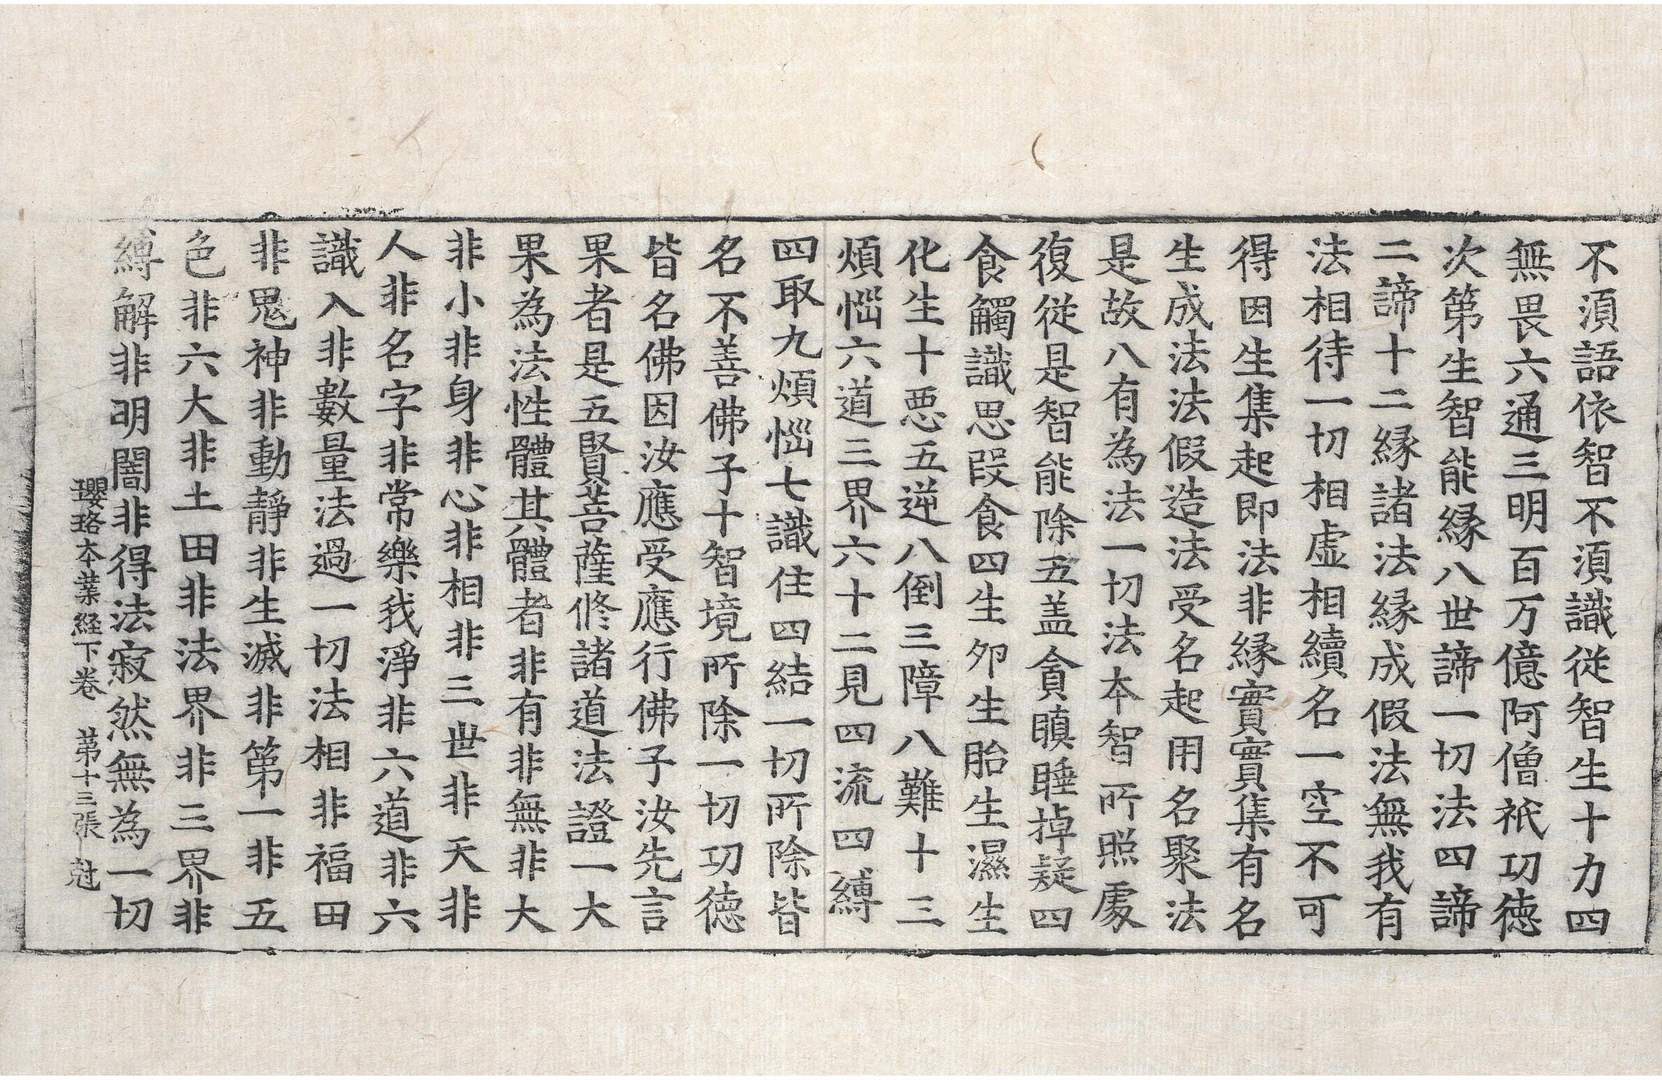 不須語依智不須識従智生十力四
無畏六通三明百万億阿僧祇㓛徳
次第生智能縁八世諦一切法四諦
二諦十二縁諸法縁成假法無我有
法相待一切相虚相續名一空不可
得因生集起即法非縁實實集有名
生成法法假造法受名起用名聚法
是故八有為法一切法本智所照處
復従是智能除五盖貪瞋睡掉疑四
食觸識思段食四生卵生胎生濕生
化生十悪五逆八倒三障八難十三
煩惱六道三界六十二見四流四縛
四取九煩惱七識住四結一切所除皆
名不善佛子十智境所除一切㓛徳
皆名佛因汝應受應行佛子汝先言
果者是五賢菩薩修諸道法證一大
果為法性體其體者非有非無非大
非小非身非心非相非三世非天非
人非名字非常樂我淨非六道非六
識入非數量法過一切法相非福田
非鬼神非動靜非生滅非第一非五
色非六大非土田非法界非三界非
縛解非明闇非得法寂然無為一切
瓔珞本業経下卷　第十三張　尅